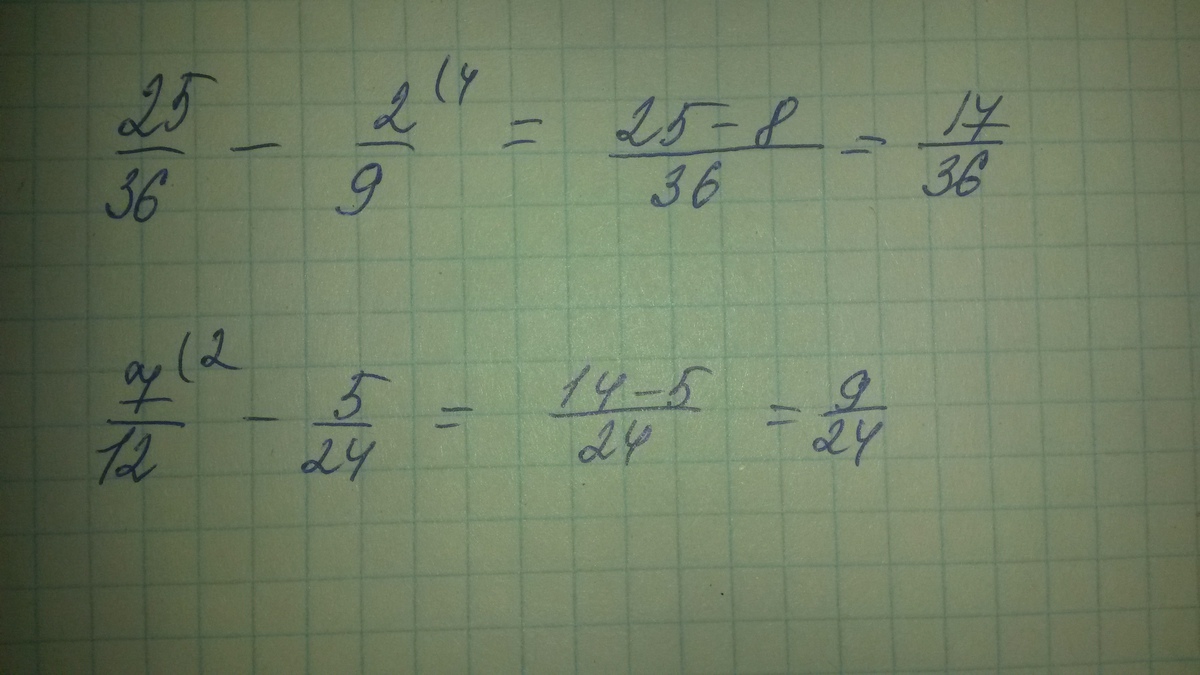 25/36 - 2/9 (4 = (25-8)/36 = 17/36
7/12 (2 - 5/24 = (14-5)/24 = 9/24